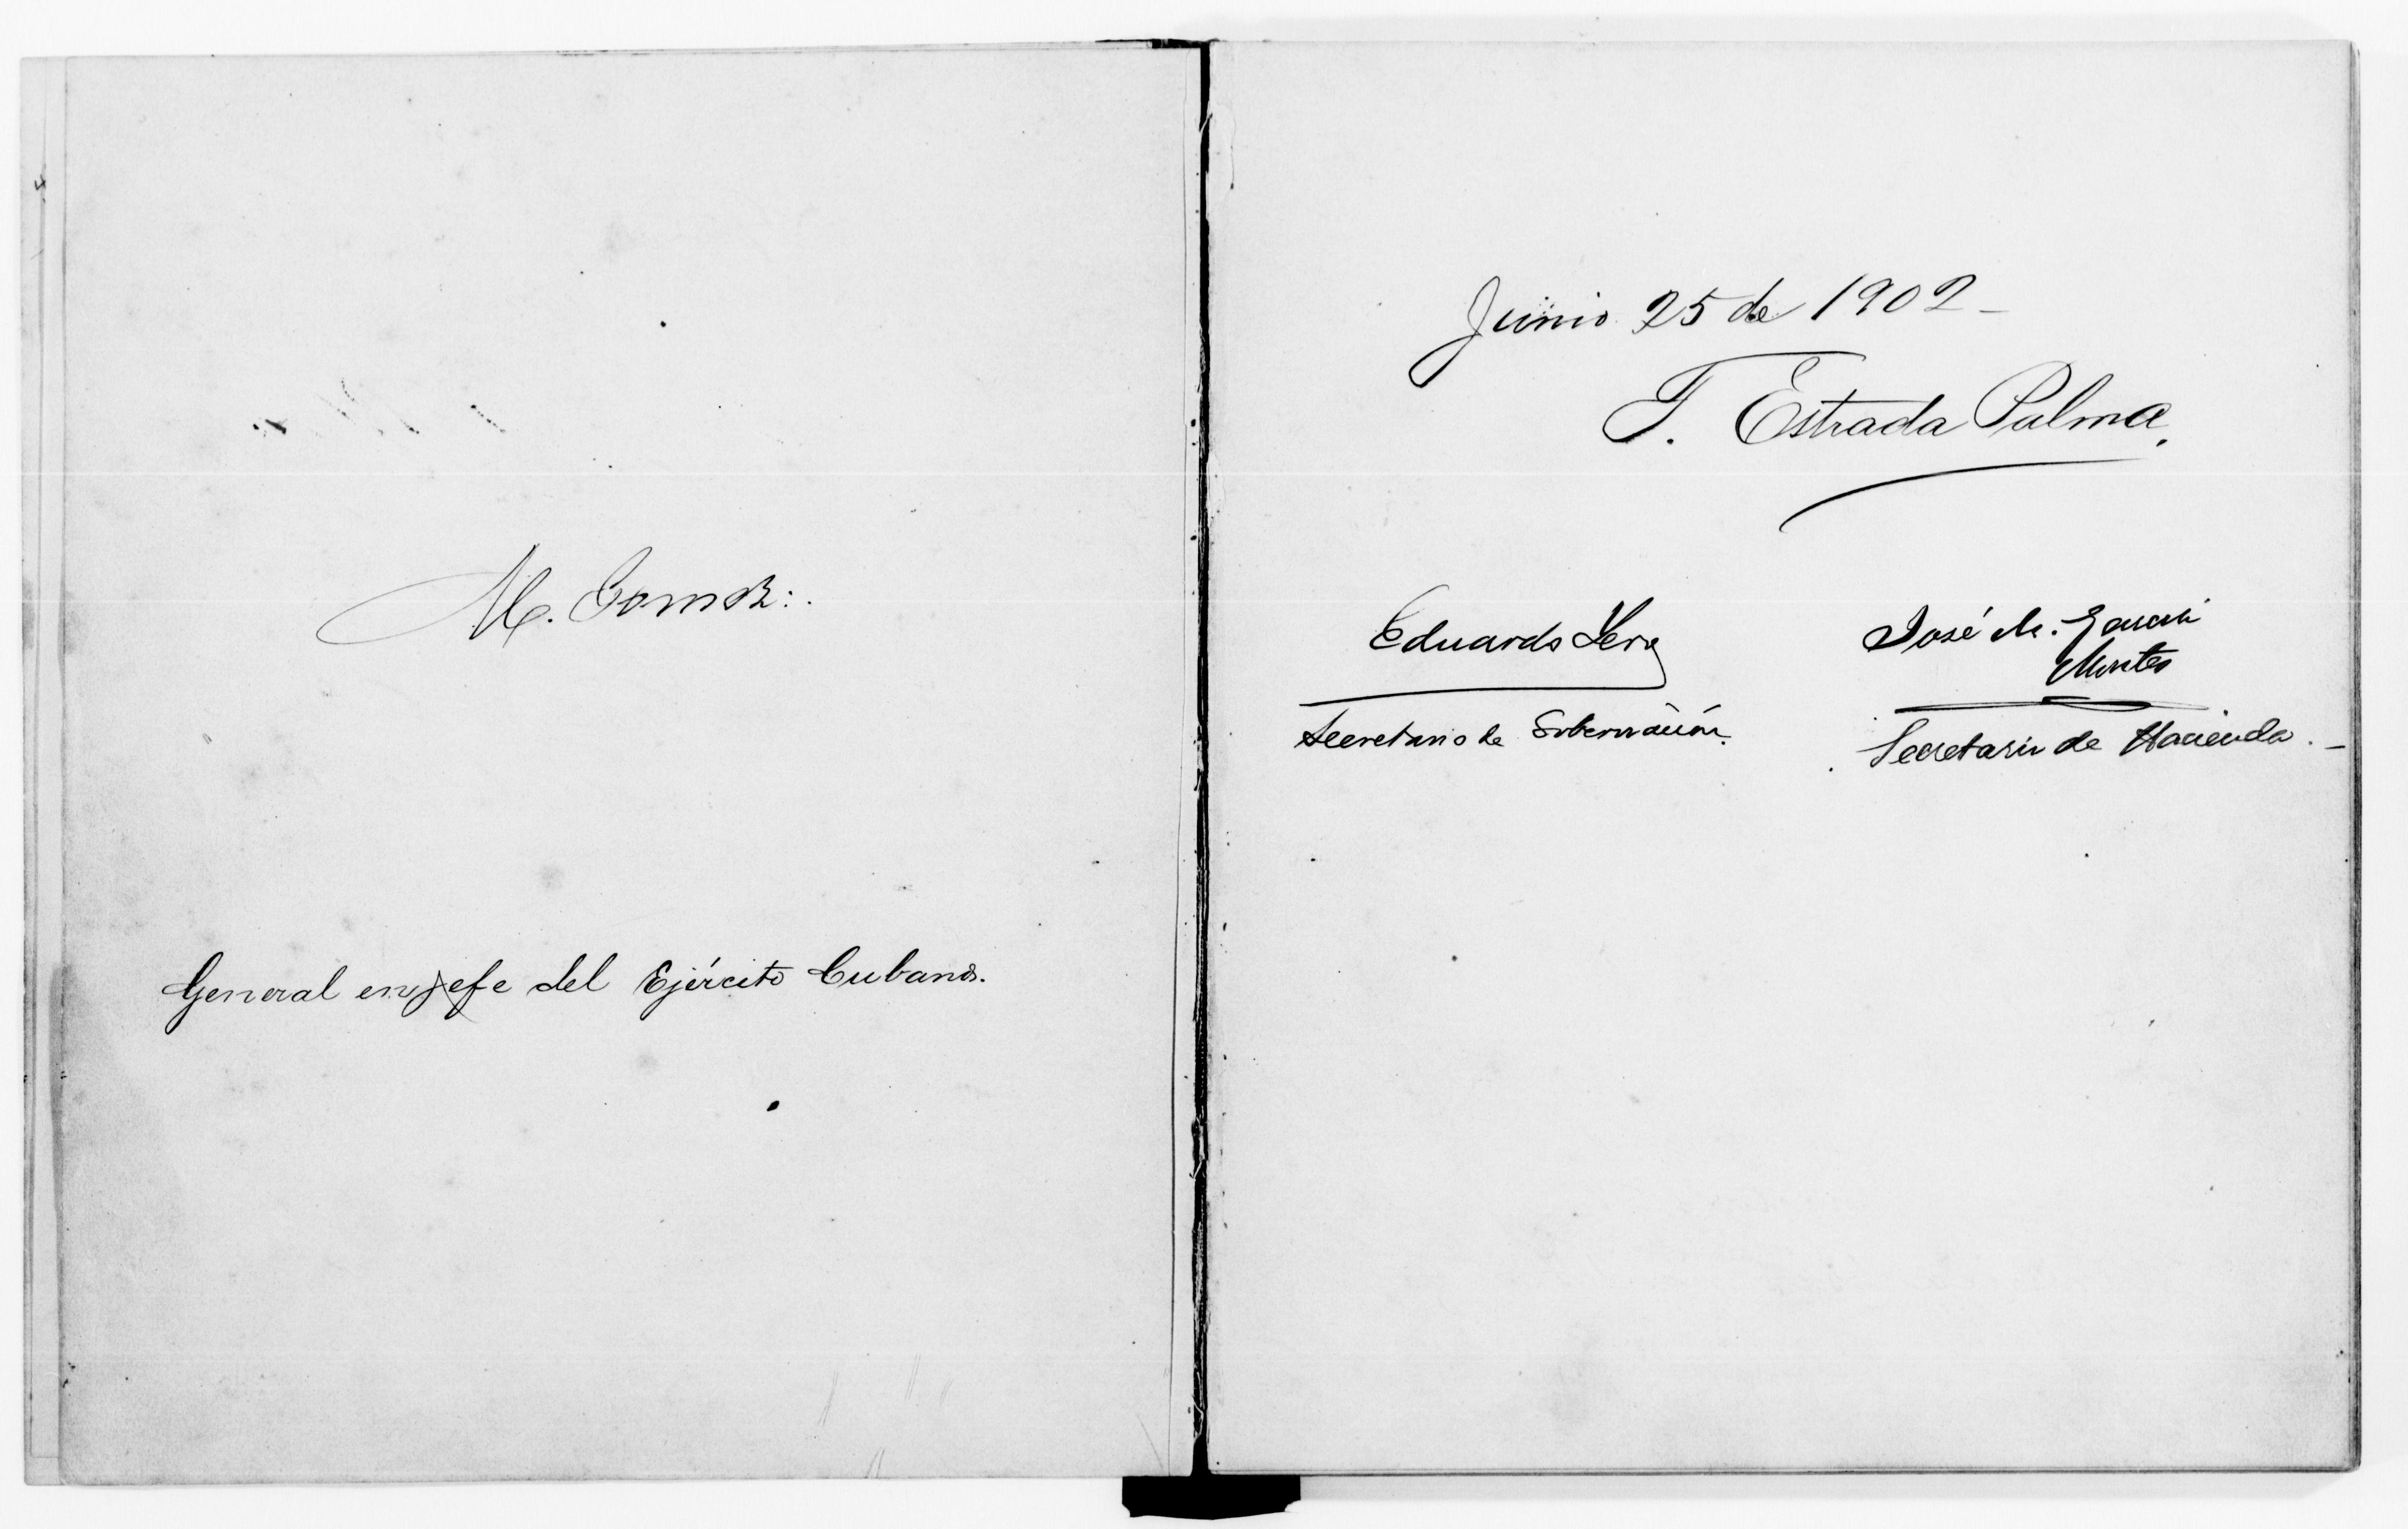 M. Gomez:.
General en jefe del Ejército Cubano.
Junio 25 de 1902-
T. Estrada Palma.
Eduardo Yero
Secretario de Gobernación.
José M. García
Montes
Secretario de Hacienda.-